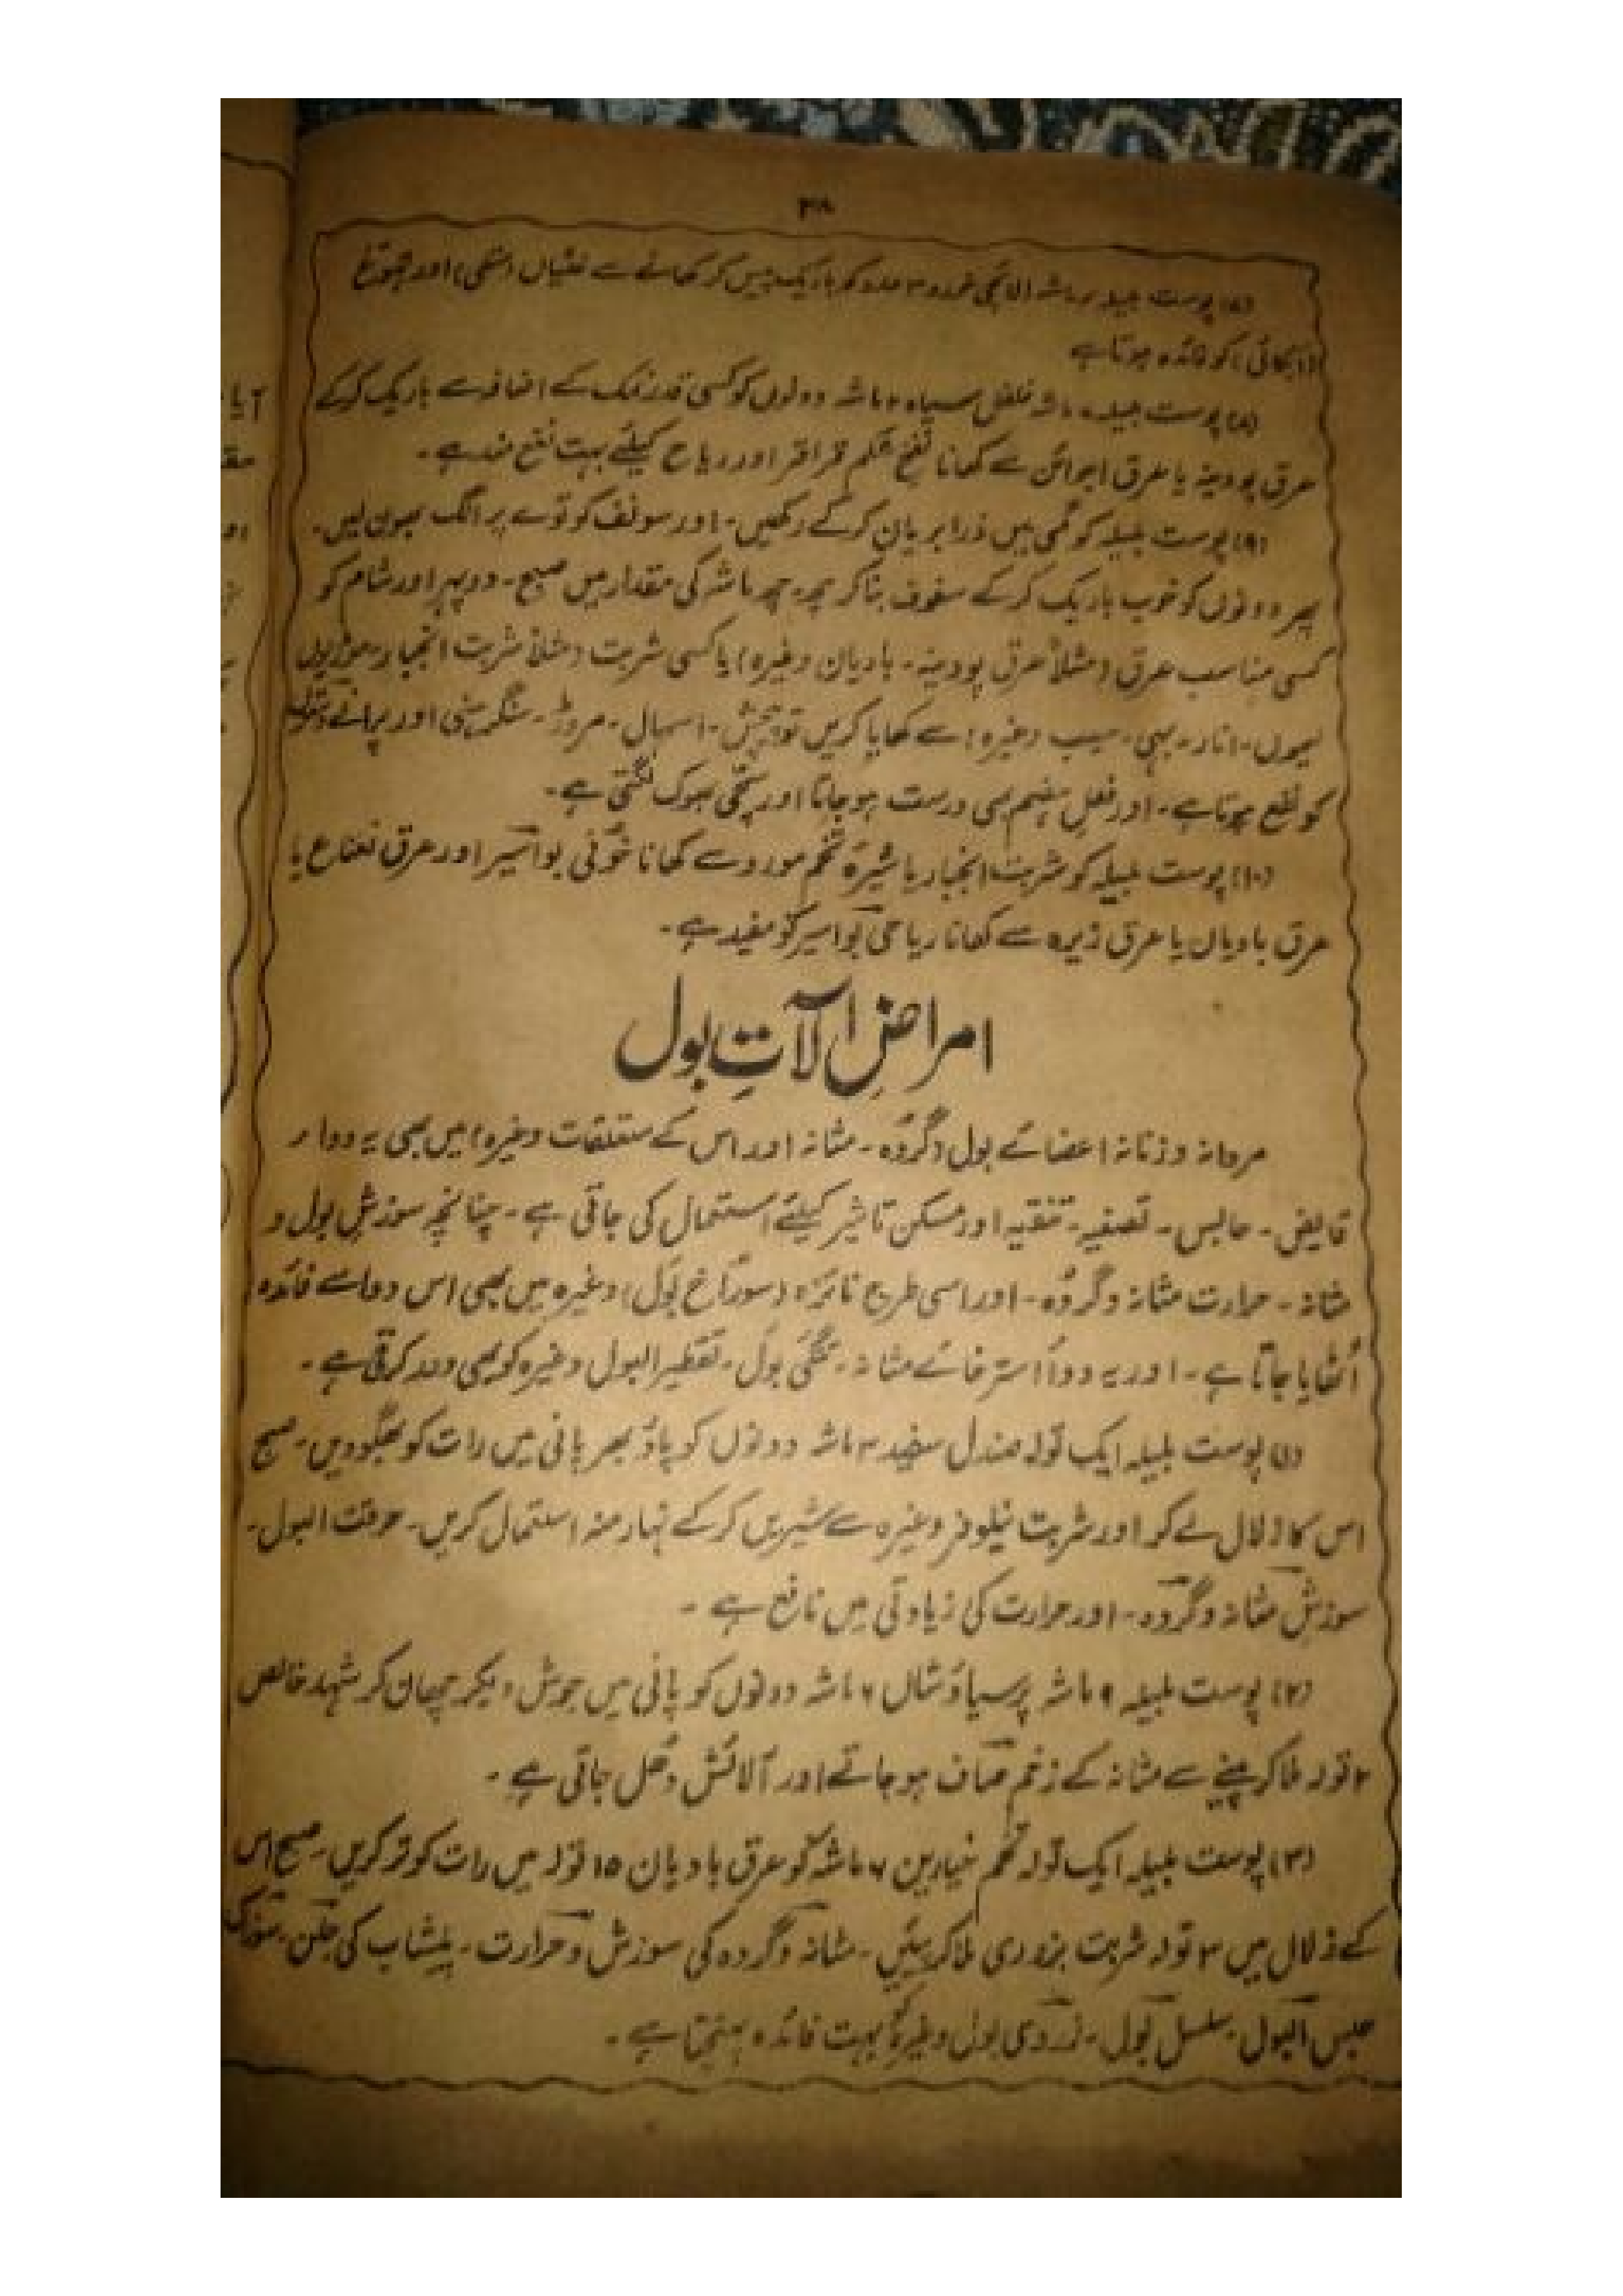 ۳۸
(۷) پوست بلیلہ ماشہ الائچی خورد ۳ عدد کو باریک پیس کر کھانے سے غثیان (متلی) اور تہوّع
(ابکائی) کو فائدہ ہوتا ہے
(۸) پوست بلیلہ ماشہ فلفل سیاہ ۲ ماشہ دونوں کو کسی قدر نمک کے اضافہ سے باریک کرکے
عرق پودینہ یا عرق اجوائن سے کھانا نفخ شکم قراقر اور ریاح کیلئے بہت نفع مند ہے۔
(۹) پوست بلیلہ کو گھی میں ذرا بریان کرکے رکھیں۔ اور سونف کو توے پر الگ بھون لیں۔
پھر دونوں کو خوب باریک کرکے سفوف بنا کر چھ چھ ماشہ کی مقدار میں صبح۔ دوپہر اور شام کو
کسی مناسب عرق (مثلاً عرق پودینہ۔ بادیان وغیرہ) یا کسی شربت (مثلاً شربت انجبار۔
لیموں۔ انار۔ بہی۔ سیب وغیرہ) سے کھایا کریں تو پیچش۔ اسہال۔ مروڑ۔ سنگرہنی اور پرانے دستوں
کو نفع ہوتا ہے۔ اور فعل ہضم بھی درست ہو جاتا اور سچی بھوک لگتی ہے۔
(۱۰) پوست بلیلہ کو شربت انجبار یا شیرہ تخم مورد سے کھانا خونی بواسیر اور عرق نعناع یا
عرق بادیان یا عرق زیرہ سے کھانا ریاحی بواسیر کو مفید ہے۔
امراضِ آلاتِ بول
مردانہ و زنانہ اعضائے بول (گردہ۔ مثانہ اور اس کے متعلقات وغیرہ) میں بھی یہ دوا
قابض۔ حابس۔ تصفیہ۔ تنقیہ اور مسکن تاثیر کیلئے استعمال کی جاتی ہے۔ چنانچہ سوزش بول و
مثانہ۔ حرارت مثانہ و گردہ۔ اور اسی طرح نائزہ (سوراخ بول) وغیرہ میں بھی اس دوا سے فائدہ
اُٹھایا جاتا ہے۔ اور یہ دوا استرخائے مثانہ۔ تنگئی بول۔ تقطیر البول وغیرہ کو بھی دور کرتی ہے۔
(۱) پوست بلیلہ ایک تولہ صندل سفید ۳ ماشہ دونوں کو پاؤ بھر پانی میں رات کو بھگو دیں۔ صبح
اس کا زلال لے کر اور شربت نیلوفر وغیرہ سے شیریں کرکے نہار منہ استعمال کریں۔ حرقت البول۔
سوزش مثانہ و گردہ۔ اور حرارت کی زیادتی میں نافع ہے۔
(۲) پوست بلیلہ ۹ ماشہ پرسیاؤشاں ۶ ماشہ دونوں کو پانی میں جوش دیکر چھان کر شہد خالص
۲ تولہ ملا کر پینے سے مثانہ کے زخم صاف ہو جاتے اور آلائش دُھل جاتی ہے۔
(۳) پوست بلیلہ ایک تولہ تخم خیارین ۶ ماشہ کو عرق بادیان ۱۵ تولہ میں رات کو تر کریں۔ صبح اس
کے زلال میں ۲ تولہ شربت بزوری ملا کر پئیں۔ مثانہ و گردہ کی سوزش و حرارت۔ پیشاب کی جلن۔ سوزاک
حبس البول۔ سلسل بول۔ زردی بول وغیرہ کو بہت فائدہ پہنچتا ہے۔